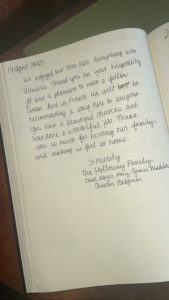 19 August 2023
We enjoyed our time here. Everything was
delicious. Thank you for your hospitality.
It was a pleasure to meet a fellow
in France. We will be
recommending a stay here to anyone.
You have a beautiful Chateau and
have done a wonderful job. Thank
you so much for hosting our family
and making us feel at home.
Sincerely,
The Holloway Family